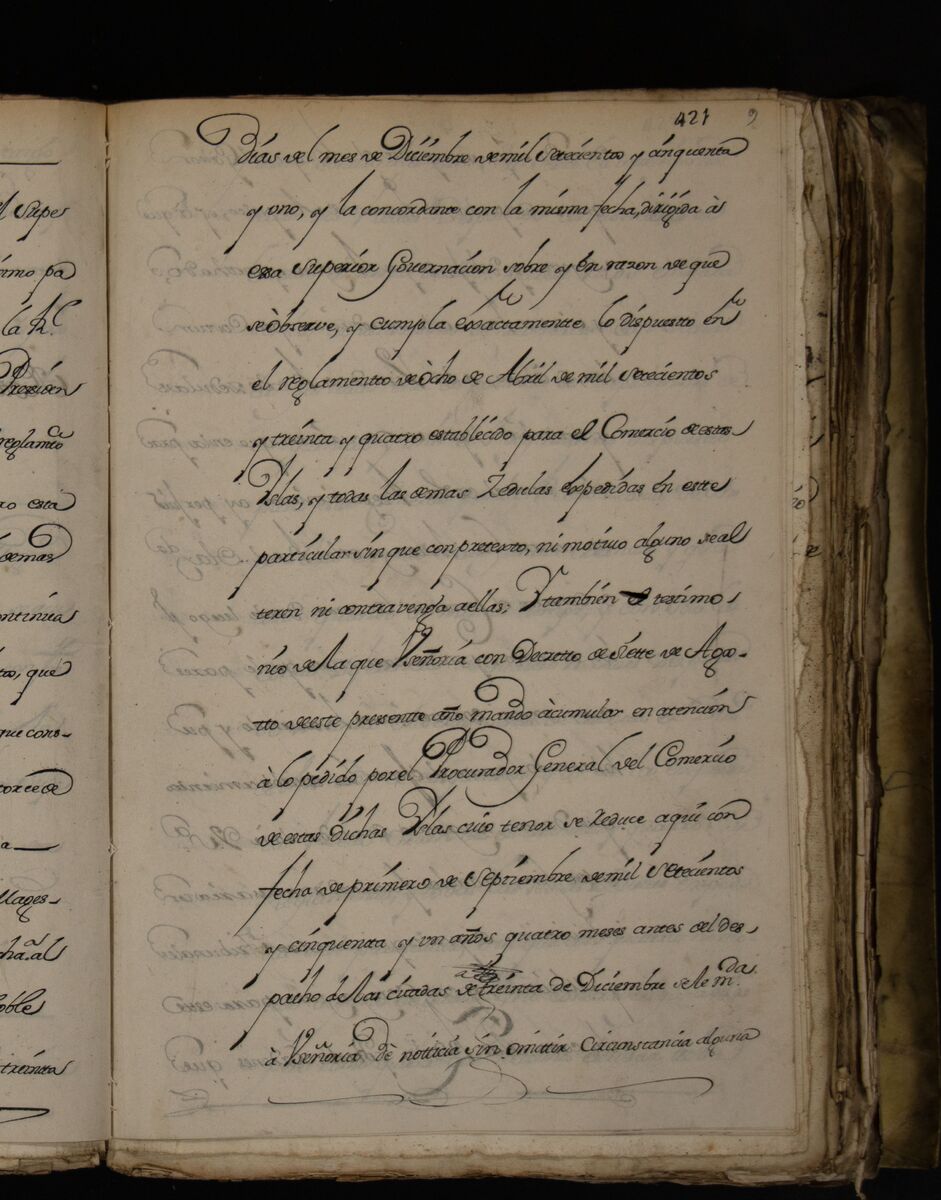 421 9
Dias del mes de Diciembre de mil Setecientos y cinquenta
y uno, y la concordante con la misma fecha, dirigida à
essa Superior Governacion sobre y en razon de que
se òbserve, y cumpla exactamentte lo dispuesto en
el reglamentto de òcho de Abril de mil Setecientos
y treinta y quatro establecido para el Comercio de estas
Yslas, y todas las demas Zedulas expedidas en estte
particular sin que con pretexto, ni motivo alguno se al
teren ni contravenga a ellas; Y tambien el testimo
nio de la que Vseñoria con Decretto de siette de Ago-
tto de este presentte año mando àcumular en atencion
à lo pedido por el Procurador General del Comercio
de estas dichas Yslas cuio tenor se reduce aqui con
fecha de primero de Septiembre de mil Setecientos
y cinquenta y un años quatro meses antes del des
pacho de las citadas de treinta de Diciembre se le mda.
à Vseñoria dè notticia sin omittir Circunstancia alguna
l Supe
imo pa
la Rl
Presiden
reglamto
ro esta
demas
ontinua
to, que
que cons-
torce de
a
Mages-
cha al
oble
treinta